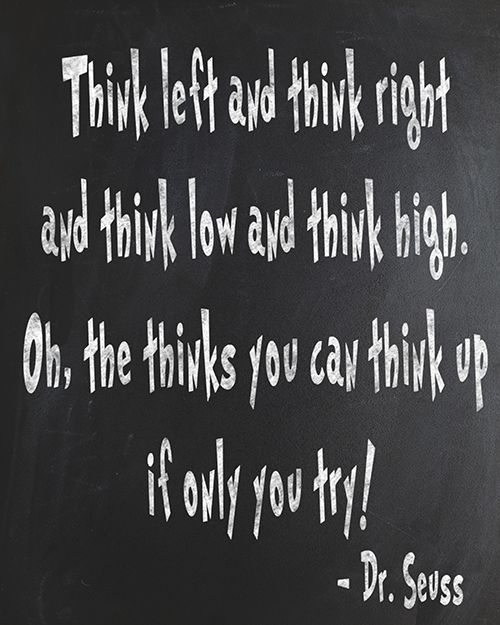 Think left and think right
and think low and think high.
Oh, the thinks you can think up
if only you try!
- Dr. Seuss